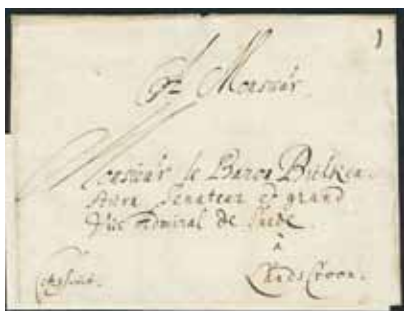 A Monsieur
Monsieur le Baron Bielken
Senateur et grand
Vic Admiral de Suede
à
Landscroon.